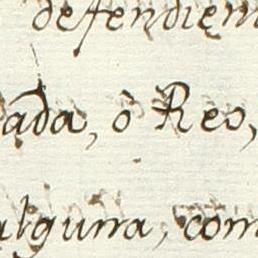 defendien
ada, ò Reo,
alguna, com